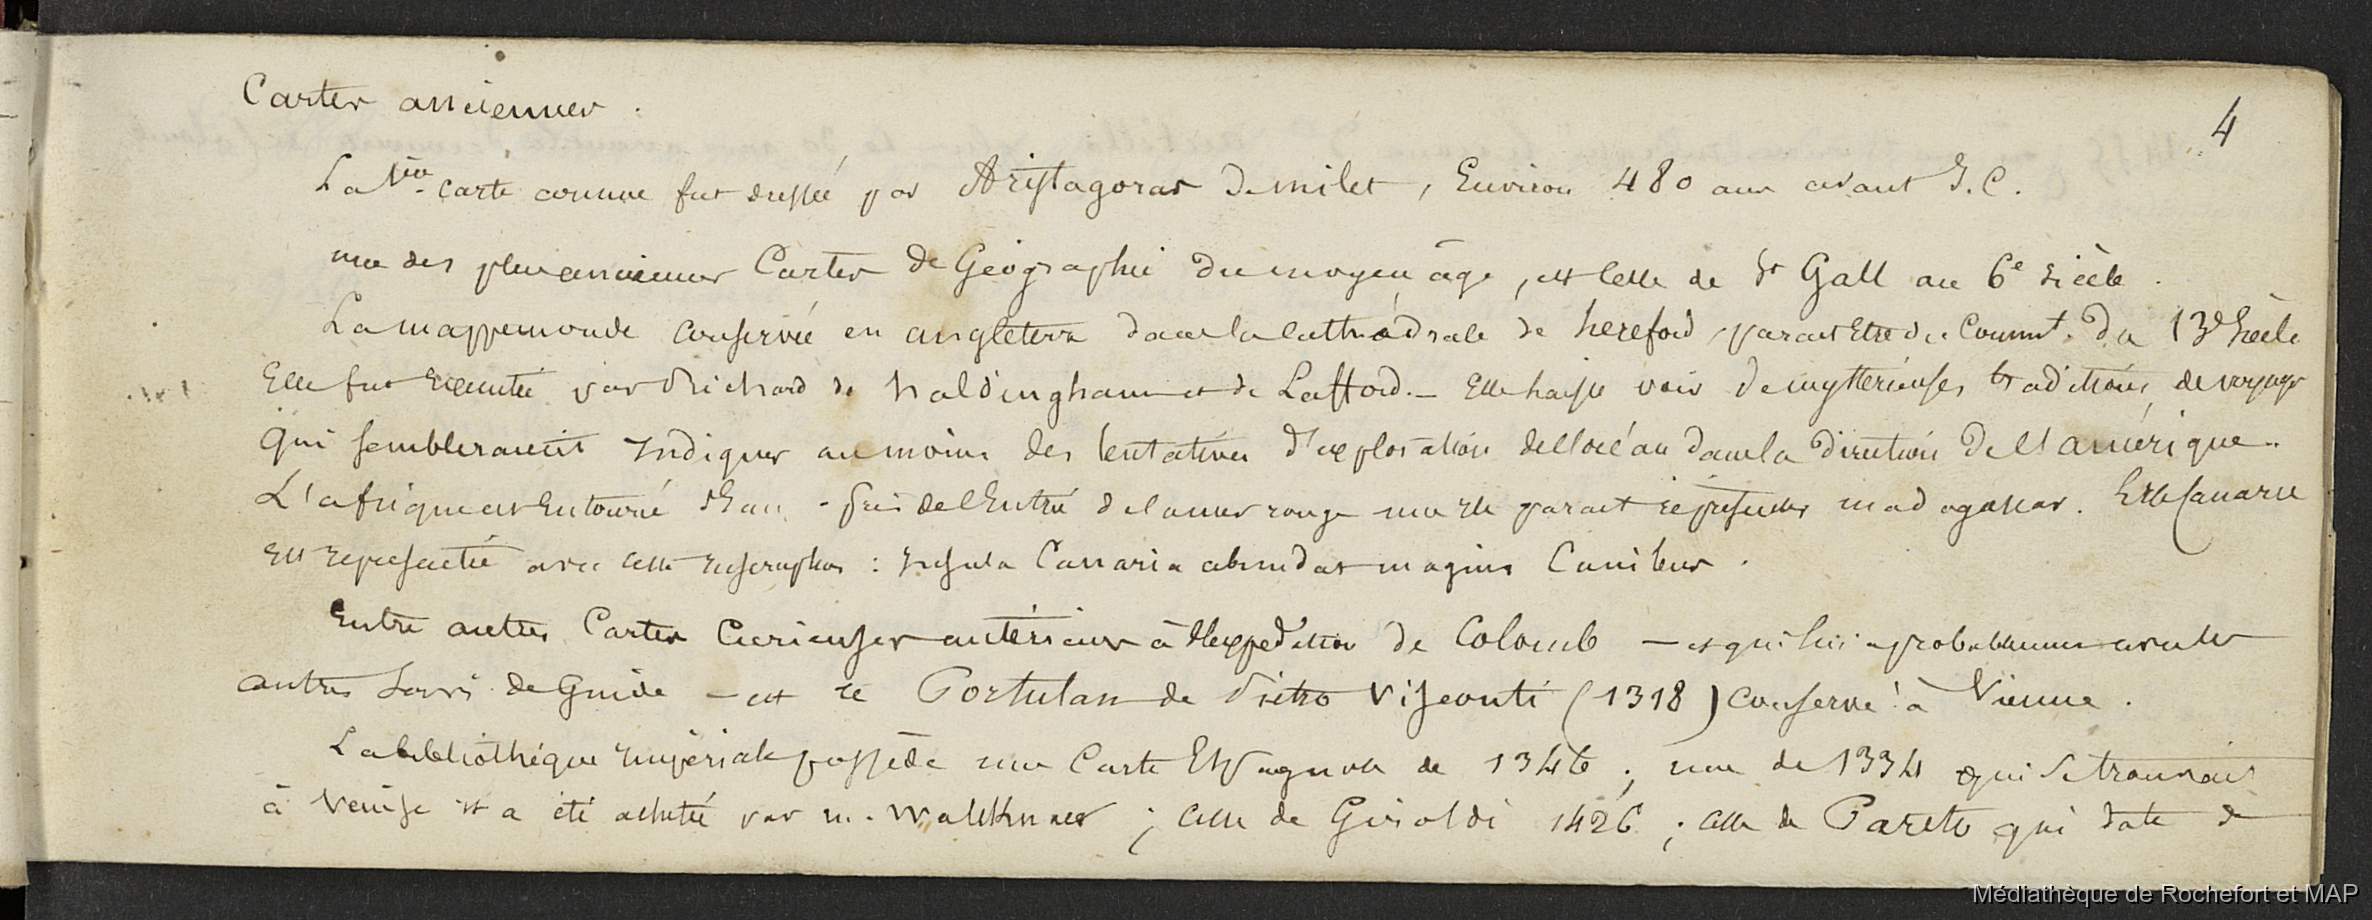 Cartes anciennes.
4
La 1ère carte connue fut dressée par Aristagoras de milet, Environ 480 ans avant J.C.
une des plus anciennes Cartes de Géographie du moyen âge, est celle de St Gall au 6e siècle.
La mappemonde conservée en angleterre dans la cathédrale de héreford, parait être du Commt. du 13e siècle
Elle fut Exécutée par Richard de haldingham et de Lafford. – Elle laisse voir de mystérieuses traditions, de voyage
qui sembleraient indiquer au moins des tentatives d'exploration de l'océan dans la direction de l'amérique.
L'afrique est Entourée d'Eau. - Près de l'Entrée de la mer rouge une ile parait représenter madagascar. L'ile Canarie
est représentée avec cette inscription : insula Canaria abundat magnis Canibus.
Entre autres Cartes Curieuses antérieures à l'expédition de Colomb – et qui lui a probablement avec les
autres servi de Guide – est le Portulan de Pietro Visconti (1318) conservé à Vienne.
La bibliothèque impériale possède une Carte Espagnole de 1346 ; une de 1334 qui se trouvait
à Venise et a été achetée par m. Walkknaer ; celle de Giraldi 1426 ; celle de Pareto qui date de
Médiathèque de Rochefort et MAP